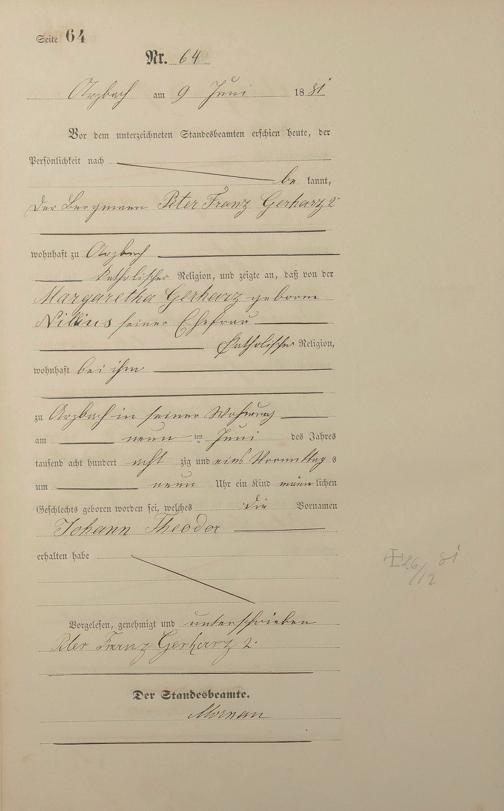 Seite 64
Nr. 64
Arzbach am 9 Juni 1881
Vor dem unterzeichneten Standesbeamten erschien heute, der
Persönlichkeit nach
be kannt,
der Bergmann Peter Franz Gerharz 2r
wohnhaft zu Arzbach
katholischer Religion, und zeigte an, daß von der
Margaretha Gerharz geborne
Nilius seiner Ehefrau
katholischer Religion,
wohnhaft bei ihm
zu Arzbach in seiner Wohnung
am neun ten Juni des Jahres
tausend acht hundert acht zig und eins Vormittag s
um neun Uhr ein Kind männ lichen
Geschlechts geboren worden sei, welches die Vornamen
Johann Theodor
erhalten habe
Vorgelesen, genehmigt und unterschrieben
Peter Franz Gerharz 2r
Der Standesbeamte.
26/12 81